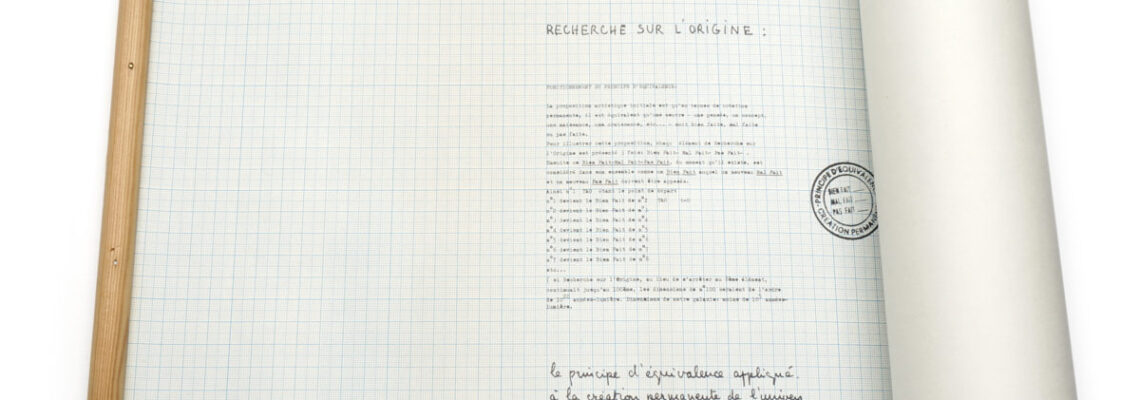 RECHERCHE SUR L'ORIGINE :
FONCTIONNEMENT DU PRINCIPE D'EQUIVALENCE.
La proposition artistique initiale est qu'en termes de création
permanente, il est équivalent qu'une oeuvre - une pensée, un concept,
une naissance, une croissance, etc... - soit bien faite, mal faite
ou pas faite.
Pour illustrer cette proposition, chaque élément de Recherche sur
l'Origine est présenté 3 fois: Bien Fait- Mal Fait- Pas Fait- .
Ensuite ce Bien Fait-Mal Fait-Pas Fait, du moment qu'il existe, est
considéré dans son ensemble comme un Bien Fait auquel un nouveau Mal Fait
et un nouveau Pas Fait doivent être opposés.
Ainsi n°1 étant le point de départ
n°1 devient le Bien Fait de n°2
n°2 devient le Bien Fait de n°3
n°3 devient le Bien Fait de n°4
n°4 devient le Bien Fait de n°5
n°5 devient le Bien Fait de n°6
n°6 devient le Bien Fait de n°7
n°7 devient le Bien Fait de n°8
etc...
Si Recherche sur l'Origine, au lieu de s'arrêter au 8ème élément,
continuait jusqu'au 100ème, les dimensions de n°100 seraient de l'ordre
de années-lumière. Dimensions de notre galaxie: moins de années-
lumière.
PRINCIPE D'EQUIVALENCE
BIEN FAIT
MAL FAIT
PAS FAIT
CREATION PERMANENTE
le principe d'équivalence appliqué
à la création permanente de l'univers